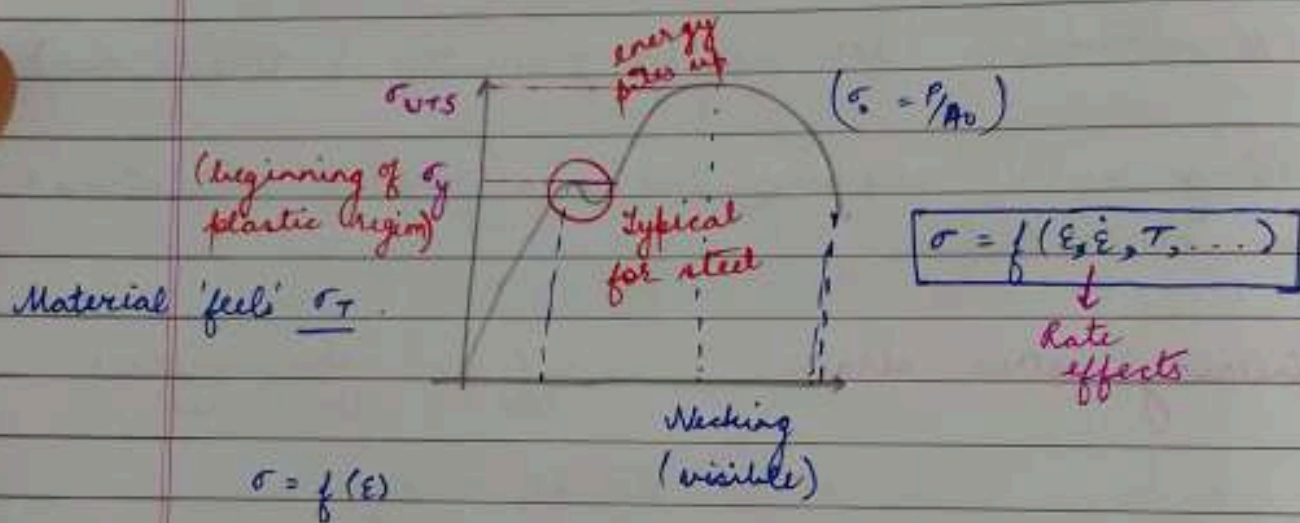 energy
piles up
σ_UTS
(σ₀ = P/A₀)
(beginning of σ_y
plastic region)
Typical
for steel
σ = f(ε, ε̇, T, ....)
Material 'feels' σ_T.
Rate
effects
Necking
(visible)
σ = f(ε)